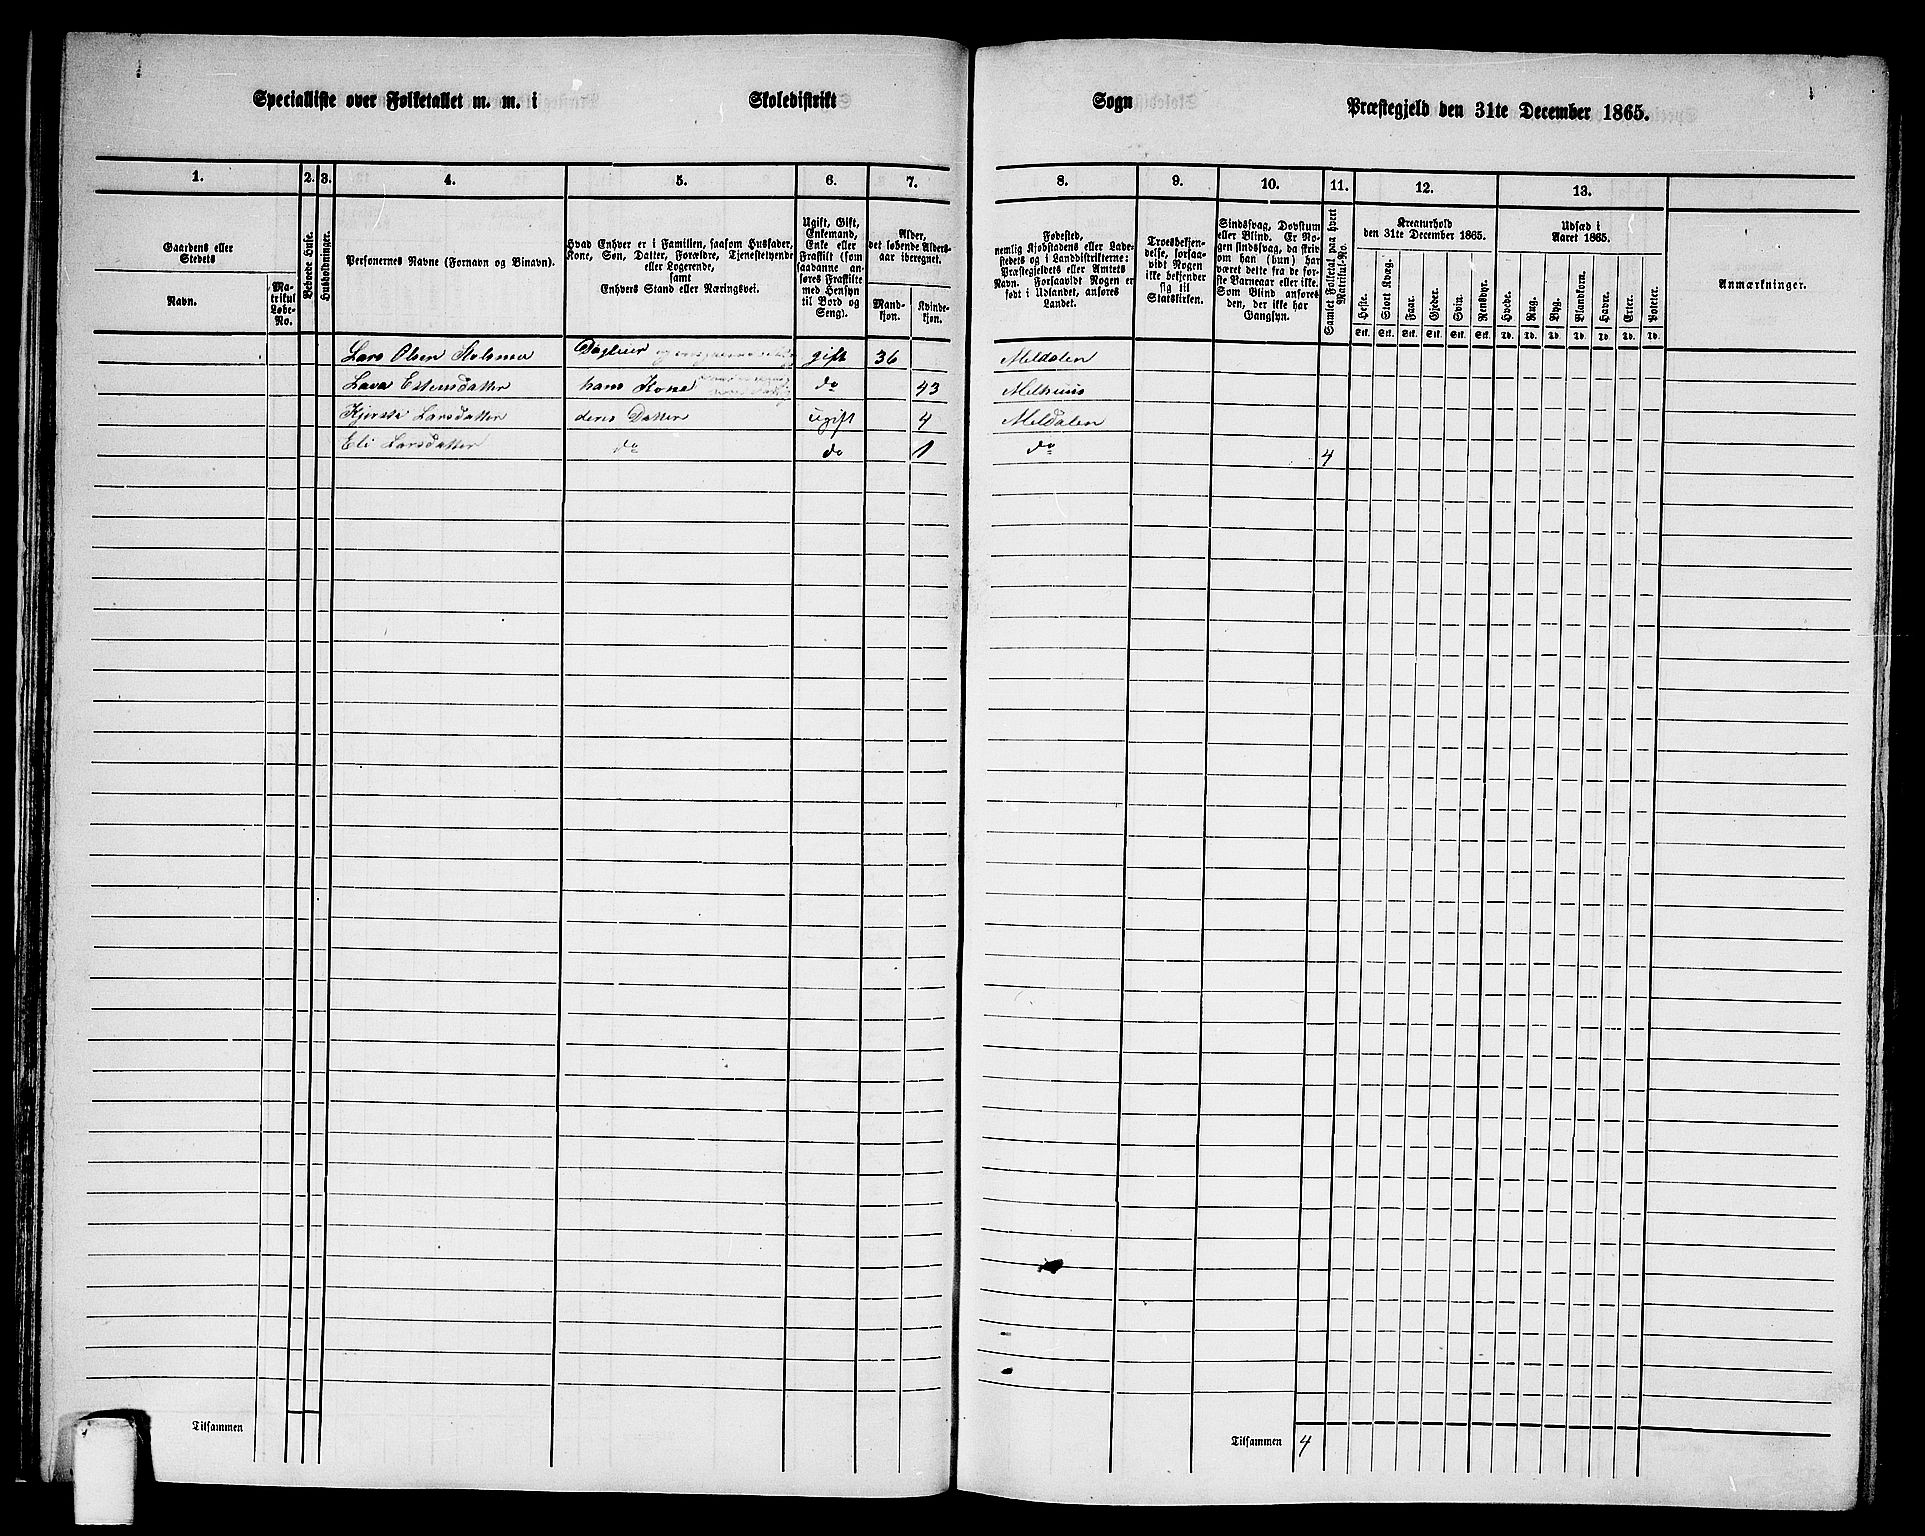 Specialliste over Folketallet m. m. i Skoledistrikt Sogn Præstegjeld den 31te December 1865.
1. 2. 3. 4. 5. 6. 7. 8. 9. 10. 11. 12. 13.
Gaardens eller
Stedets
Navn.
Ma-
trikul
Løbe-
No.
Beboede Huse.
Husholdninger.
Personernes Navne (Fornavn og Binavn).
Hvad Enhver er i Familien, saasom Husfader,
Kone, Søn, Datter, Forældre, Tjenestetyende
eller Logerende,
samt
Enhvers Stand eller Næringsvei.
Ugift, Gift,
Enkemand,
Enke eller
Fraskilt (som
saadanne an-
føres Fraskilte
med Hensyn
til Bord og
Seng).
Alder,
det løbende Alders-
aar iberegnet.
Mand-
kjøn.
Kvinde-
kjøn.
Fødested,
nemlig Kjøbstadens eller Lade-
stedets og i Landdistrikterne:
Præstegjeldets eller Amtets
Navn. Forsaavidt Nogen er
født i Udlandet, anføres
Landet.
Troesbekjen-
delse, forsaa-
vidt Nogen
ikke bekjender
sig til
Statskirken.
Sindssvag, Døvstum
eller Blind. Er No-
gen sindssvag, da skriv
om han (hun) har
været dette fra de før-
ste Barneaar eller ikke.
Som Blind anføres
den, der ikke har
Gangsyn.
Samlet Folketal paa hvert
Matrikul-No.
Kreaturhold
den 31te December 1865.
Heste. Stort Kvæg. Faar. Gjeder. Svin. Rensdyr.
Stk. Stk. Stk. Stk. Stk. Stk.
Udsæd i
Aaret 1865.
Hvede. Rug. Byg. Blandkorn. Havre. Erter. Poteter.
Td. Td. Td. Td. Td. Td. Td.
Anmærkninger.
Lars Olsen Dagleier gift 36 Meldalen
Estensdatter hans Kone do 43 Melhuus
Larsdatter deres Datter ugift 4 Meldalen
Eli Larsdatter do do 1 do 4
Tilsammen
Tilsammen 4